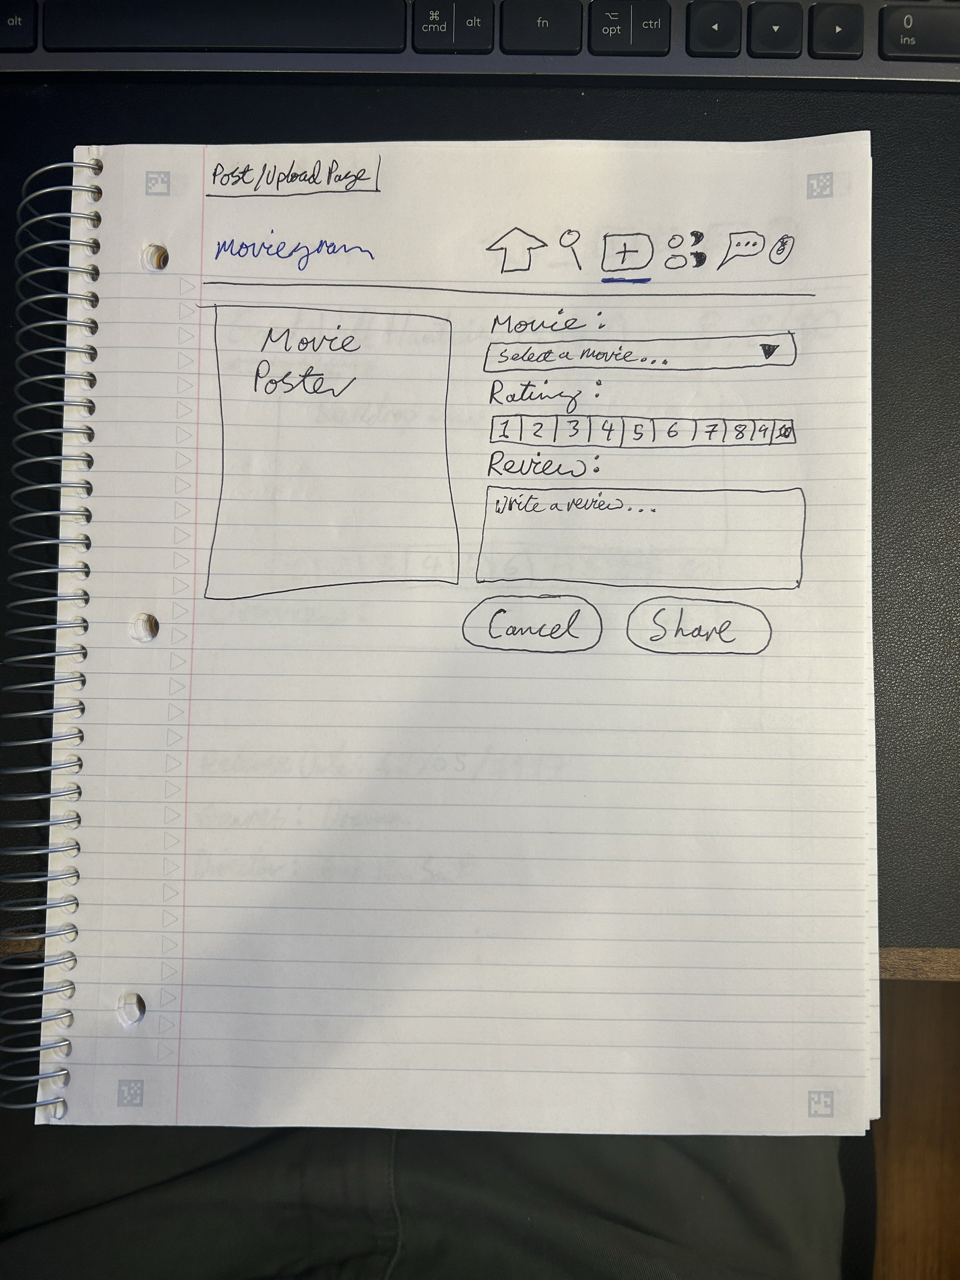 alt
⌘
cmd
alt
fn
⌥
opt
ctrl
0
ins
Post/Upload Page
moviegram
Movie
Poster
Movie:
Select a movie...
Rating:
1 2 3 4 5 6 7 8 9 10
Review:
Write a review...
Cancel
Share